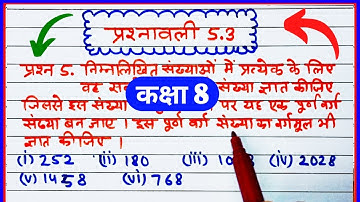 प्रश्नावली 5.3
प्रश्न 5. निम्नलिखित संख्याओं में प्रत्येक के लिए
वह ज्ञात कीजिए
जिससे इस संख्या पर यह एक पूर्ण वर्ग
कक्षा 8
संख्या बन जाए। इस पूर्ण वर्ग संख्या का वर्गमूल भी
ज्ञात कीजिए।
(i) 252 (ii) 180 (iii) (iv) 2028
(v) 1458 (vi) 768